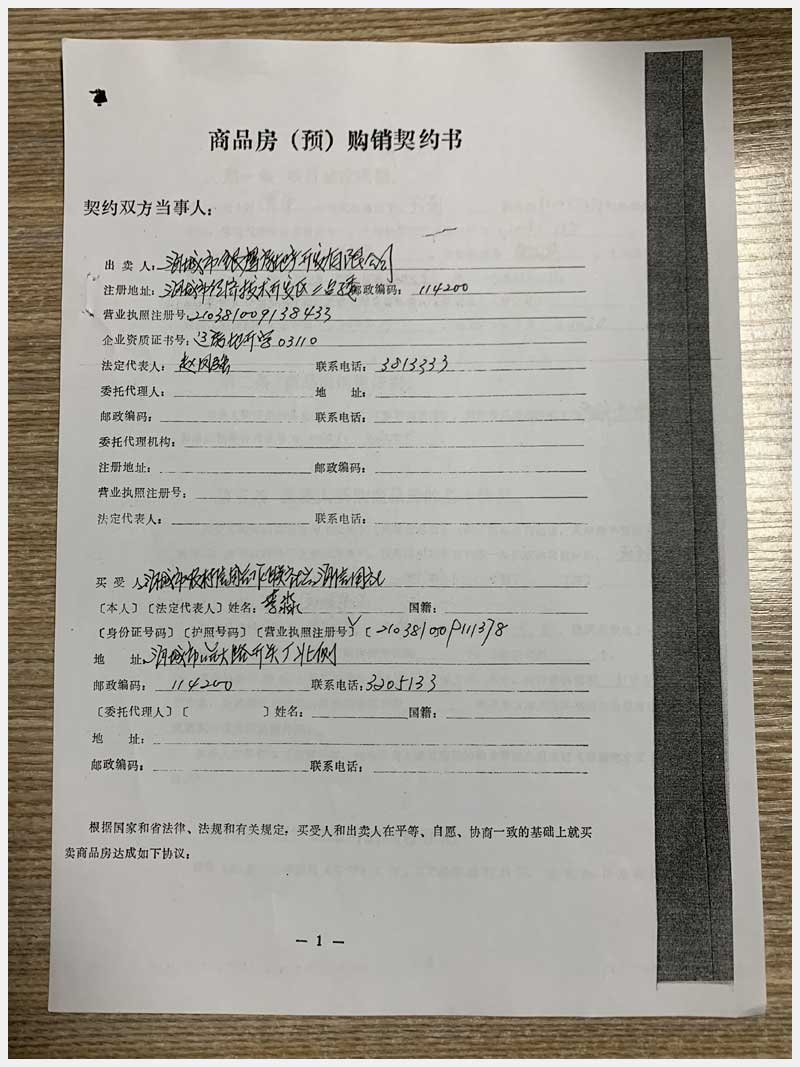 商品房（预）购销契约书
契约双方当事人：
出卖人：海城市银 房地产开发有限公司
注册地址：海城市经济技术开发区 邮政编码：114200
营业执照注册号：210381009138433
企业资质证书号：03110
法定代表人：赵 联系电话：3813333
委托代理人： 地 址：
邮政编码： 联系电话：
委托代理机构：
注册地址： 邮政编码：
营业执照注册号：
法定代表人： 联系电话：
买受人 海城市农村信用合作联社 信用社
〔本人〕〔法定代表人〕姓名：李 国籍：
〔身份证号码〕〔护照号码〕〔营业执照注册号〕〔
地 址：海城市 大路开关厂北侧
邮政编码：114200 联系电话：3205133
〔委托代理人〕〔 〕姓名： 国籍：
地 址：
邮政编码： 联系电话：
根据国家和省法律、法规和有关规定，买受人和出卖人在平等、自愿、协商一致的基础上就买
卖商品房达成如下协议：
— 1 —